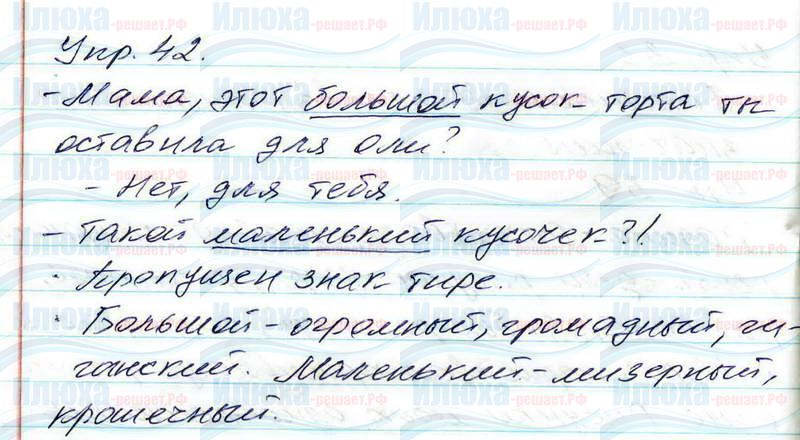 Упр. 42.
- Мама, этот большой кусок торта ты
оставила для Оли?
- Нет, для тебя.
- Такой маленький кусочек?!
· Пропущен знак тире.
· Большой - огромный, громадный, ги-
гантский. Маленький - мизерный,
крошечный.